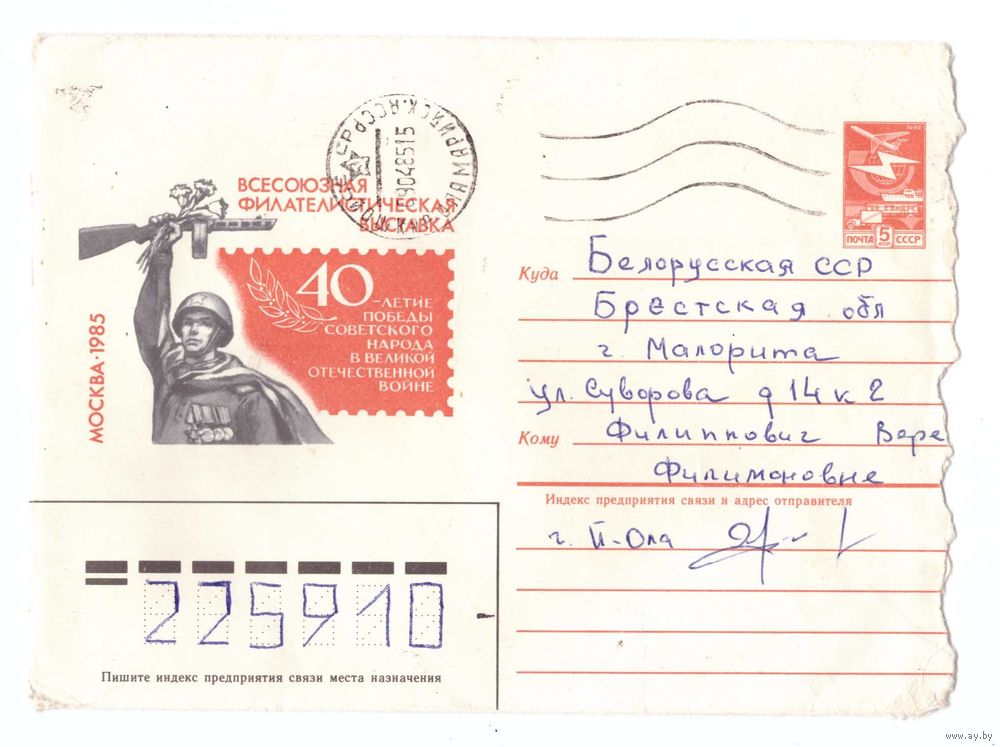 ВСЕСОЮЗНАЯ
ФИЛАТЕЛИСТИЧЕСКАЯ
ВЫСТАВКА
МОСКВА·1985
40
-ЛЕТИЕ
ПОБЕДЫ
СОВЕТСКОГО
НАРОДА
В ВЕЛИКОЙ
ОТЕЧЕСТВЕННОЙ
ВОЙНЕ
ПОЧТА 5 КОП СССР
Куда Белорусская ССР
Брестская обл
г. Малорита
ул. Суворова д 14 к 2
Кому Филиппович Вере
Филимоновне
Индекс предприятия связи и адрес отправителя
г. Й-Ола
225910
Пишите индекс предприятия связи места назначения
www.ay.by